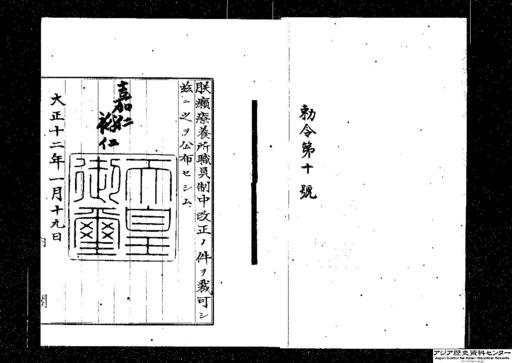 勅令第十號
朕癩療養所職員制中改正ノ件ヲ裁可シ
玆ニ之ヲ公布セシム
嘉仁
裕仁
天皇
御璽
大正十二年一月十九日
内閣
アジア歴史資料センター
Japan Center for Asian Historical Records